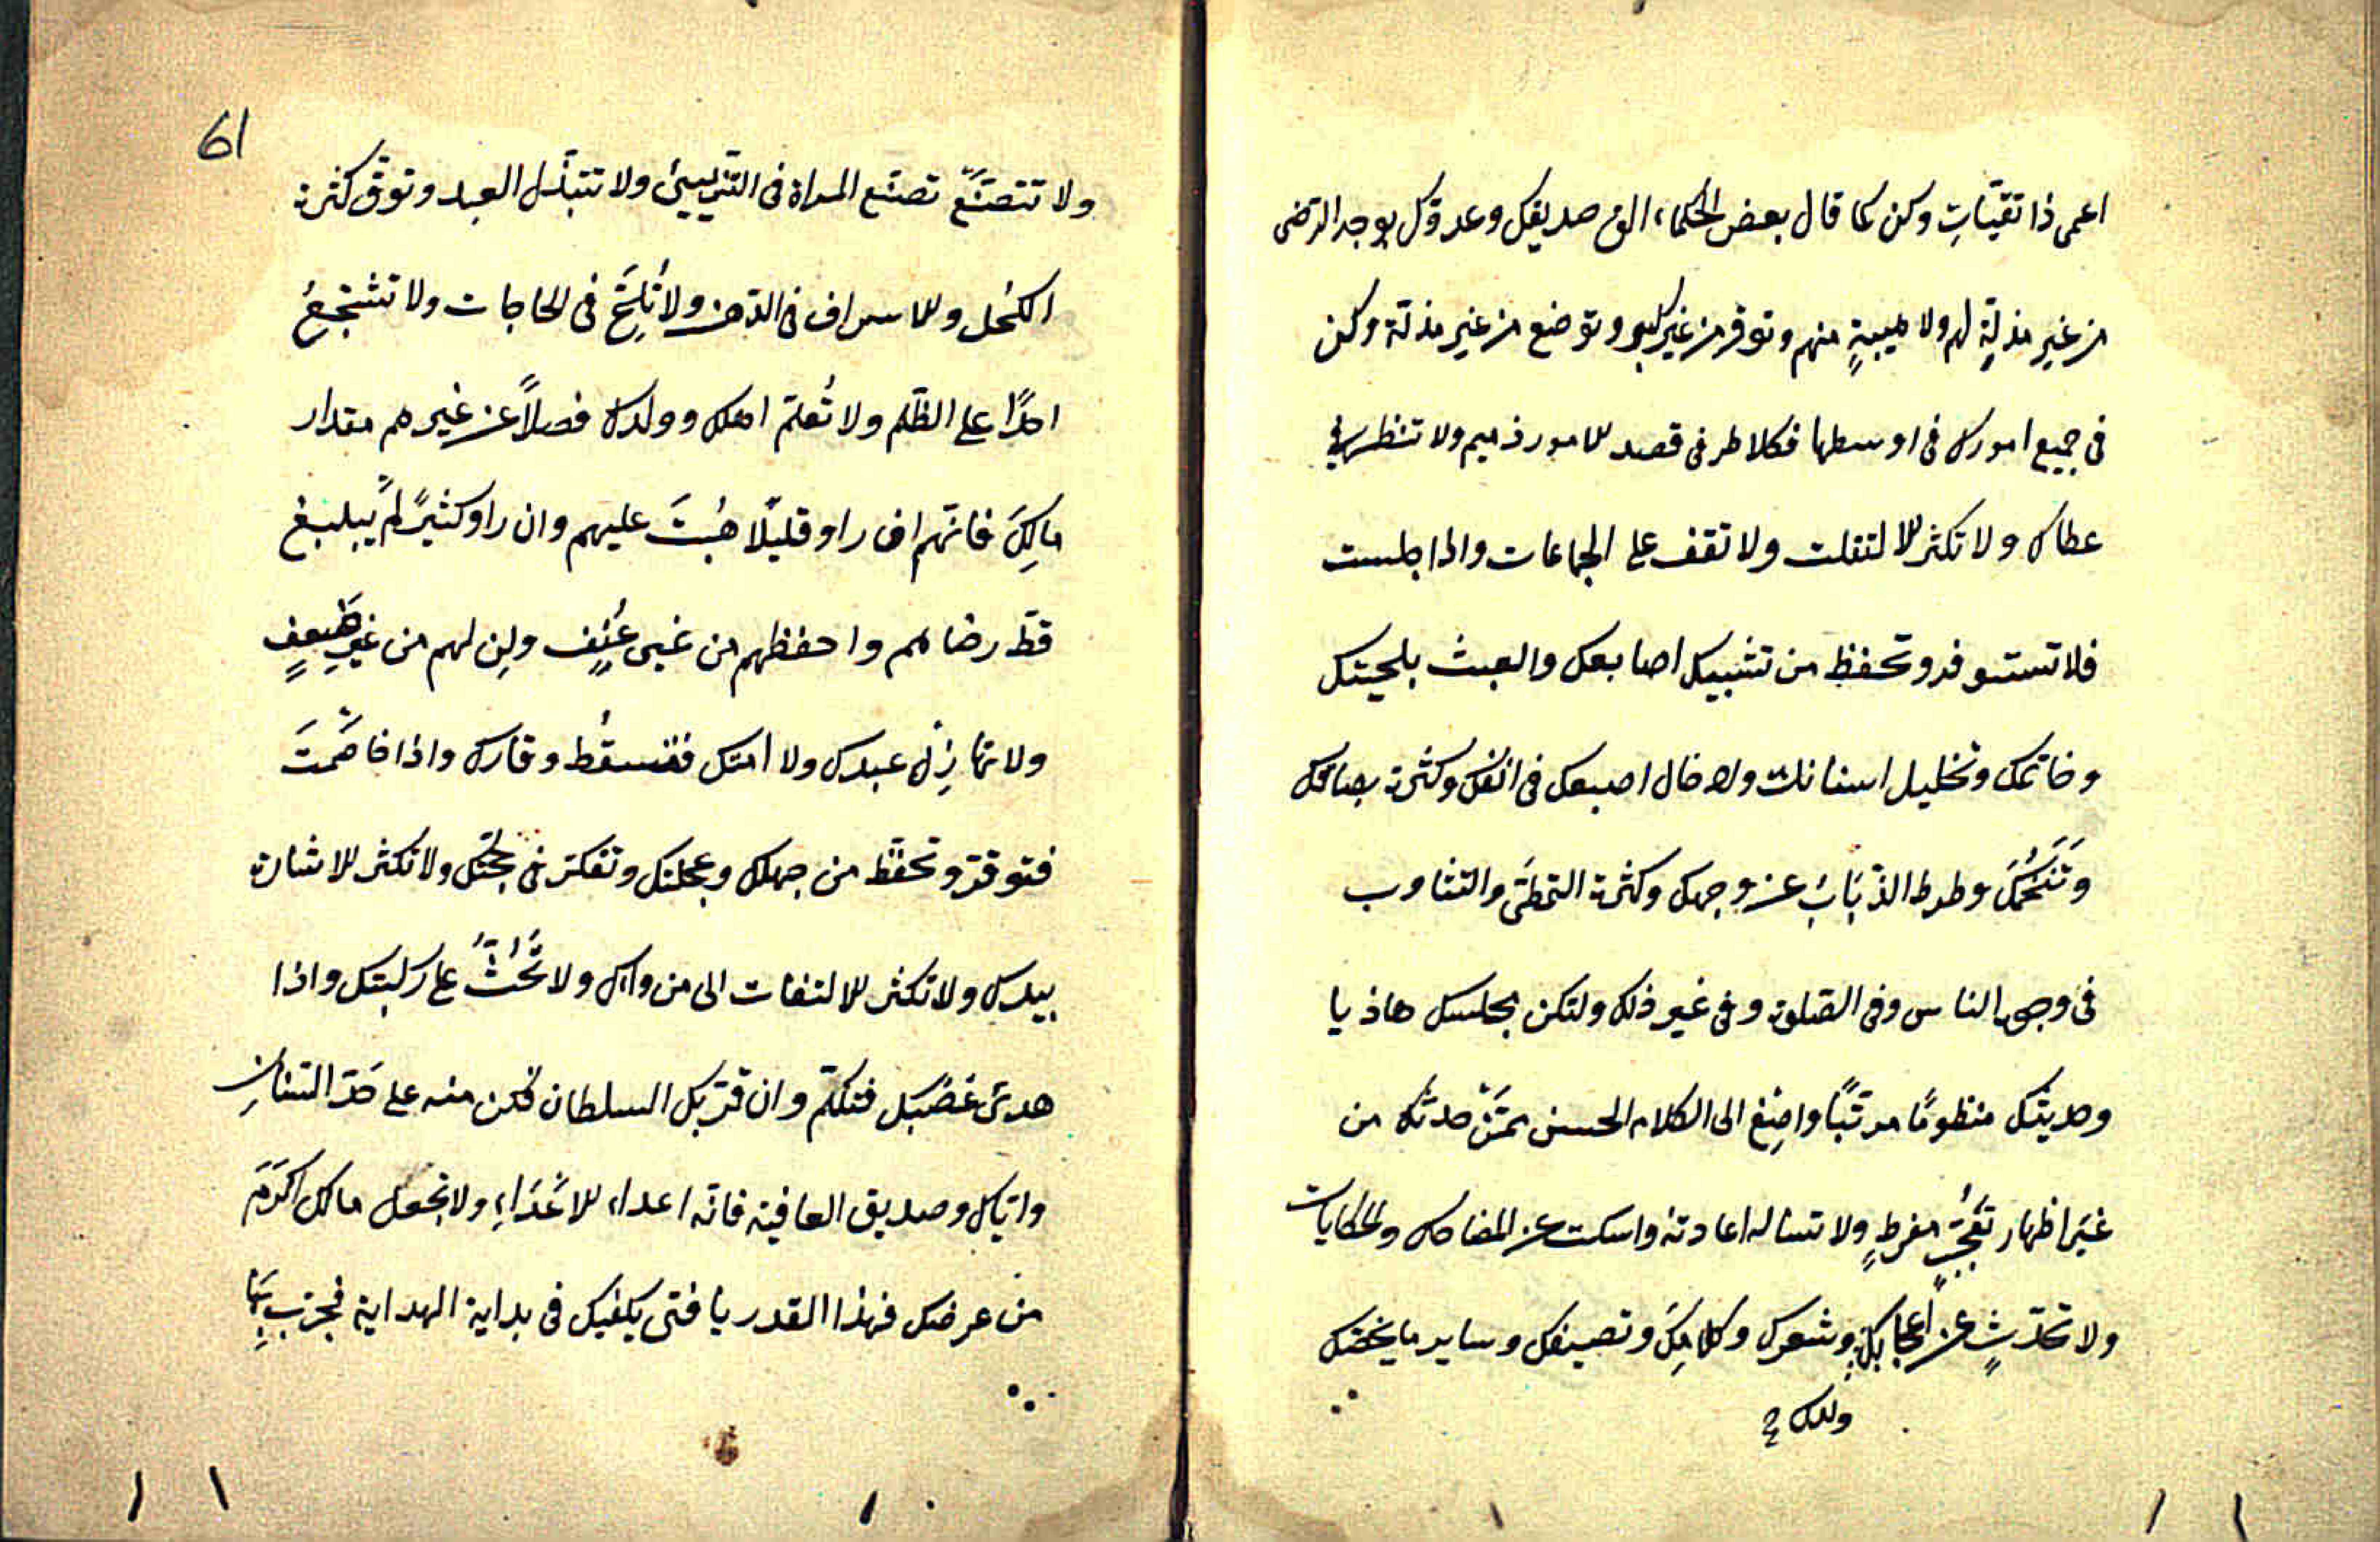 اعمى ذا تقيّاتٍ وكن كما قال بعض الحكماء الق صديقك وعدوّك بوجه الرّضى
من غير مذلّةٍ لهم ولا هيبةٍ منهم وتوقر من غير كبر وتوضع من غير مذلّة وكن
فى جميع امورك فى اوسطها فكلا طرفى قصد الامور ذميم ولا تنظر فى
عطاك ولا تكثر الالتفلت ولا تقف على الجماعات واذا جلست
فلا تستوفد وتحفظ من تشبيك اصابعك والعبث بلحيتك
وخاتمك وتخليل اسنانك وادخال اصبعك فى انفك وكثرة بصاقك
وتَنَخُّمَكَ وطرد الذّبَابَ عن وجهك وكثرة التمطّى والتثاوب
فى وجه الناس وفى الصّلوة وفى غير ذلك ولتكن مجلسك هاذيا
وحديثك منظومًا مرتّبًا واصِغ الى الكلام الحسن ممّنْ حدثك من
غيَر اظهار تعُجّبٍ مفرطٍ ولا تساله اعادته واسكت عن المضاحك والحكايات
ولا تحدّثٍ عن اعجابك وشعرك وكلامِكَ وتصنيفك وساير ما يخصّك
ولا تتصَنَّعَ تصنّع المراة فى التزيين ولا تتبذّل العبد وتوقّ كثرة
الكُحل والاسراف فى الدّهن ولا تُلِحَّ فى الحاجات ولا تشجّعُ
احدًا على الظّلم ولا تُعلّم اهلك وولدك فصلاً عن غيرهم مقدار
مالِكَ فانّهم ان راو قليلًا هُنْتَ عليهم وان راو كثيرًا لم يبلغ
قطّ رضاهم واحفظهم من غير عُنْفٍ ولِن لهم من غير ضعفٍ
ولا تهازِلْ عبدك ولا امتك فتسقُط وقارك واذا خاصَمتَ
فتوقّر وتحفّظ من جهلك وعجلتك وتفكّر فى حجّتك ولا تكثر الاشارة
بيدك ولا تكثر الالتفات الى من وراك ولا تَجُثُّ على ركبتك واذا
هدئ غضَبك فتكلّم وان قرّبك السلطان فكن منه على حَدّ السّنانِ
وايّاك وصديق العافية فانّه اعداء الاعْدَاءِ ولا تجعل مالك اكْرَمَ
من عرضك فهذا القدر يا فتى يكفيك فى بداية الهداية فجرّب بِهَا
61